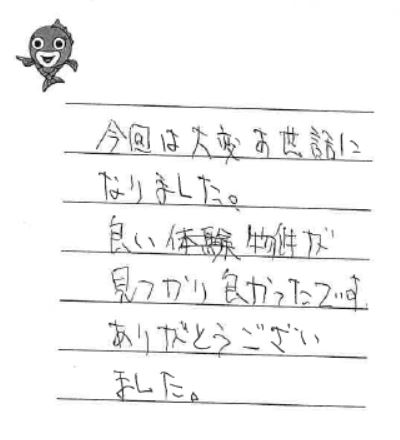 今回は大変お世話に
なりました。
良い体験物件が
見つかり良かったです。
ありがとうござい
ました。